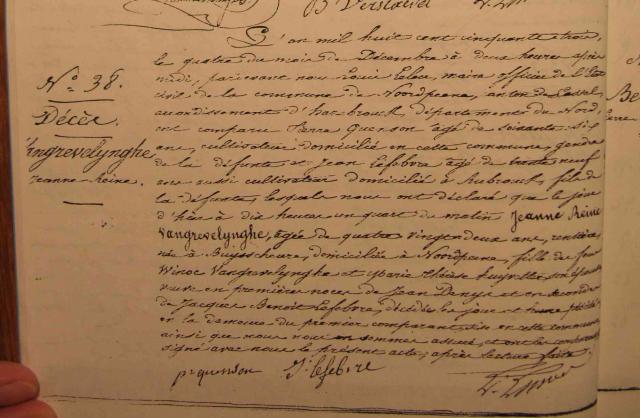 B Verstavel
L'an mil huit cent cinquante trois,
le quatre du mois de Décembre à deux heures après
midi, pardevant nous Louis maire officier de l'Etat
civil de la commune de Noordpeene, canton de Cassel,
arrondissement d'hazebrouck, département du Nord
ont comparu Pierre Quenson agé de soixante six
ans, cultivateur domicilié en cette commune, gendre
de la défunte et Jean Lefebvre agé de trente neuf
ans aussi cultivateur domicilié à Rubrouck, fils de
la défunte, lesquels nous ont déclaré que le jour
d'hier à dix heures un quart du matin Jeanne Reine
Vangrevelynghe, agée de quatre vingt deux ans, rentière
née à Buysscheure, domiciliée à Noordpeene, fille de feu
Winoc Vangrevelynghe et Marie Thérèse son épouse
veuve en premières noces de Jean Denys et en secondes
de Jacques Benoit Lefebvre, décédée les jour et heure
en la demeure du premier comparant sise en cette commune
ainsi que nous nous en sommes assuré, et ont les comparants
signé avec nous le présent acte, après lecture faite.
p. quenson J. lefebvre
N.º 38.
Décès.
Vangrevelynghe
Jeanne Reine.